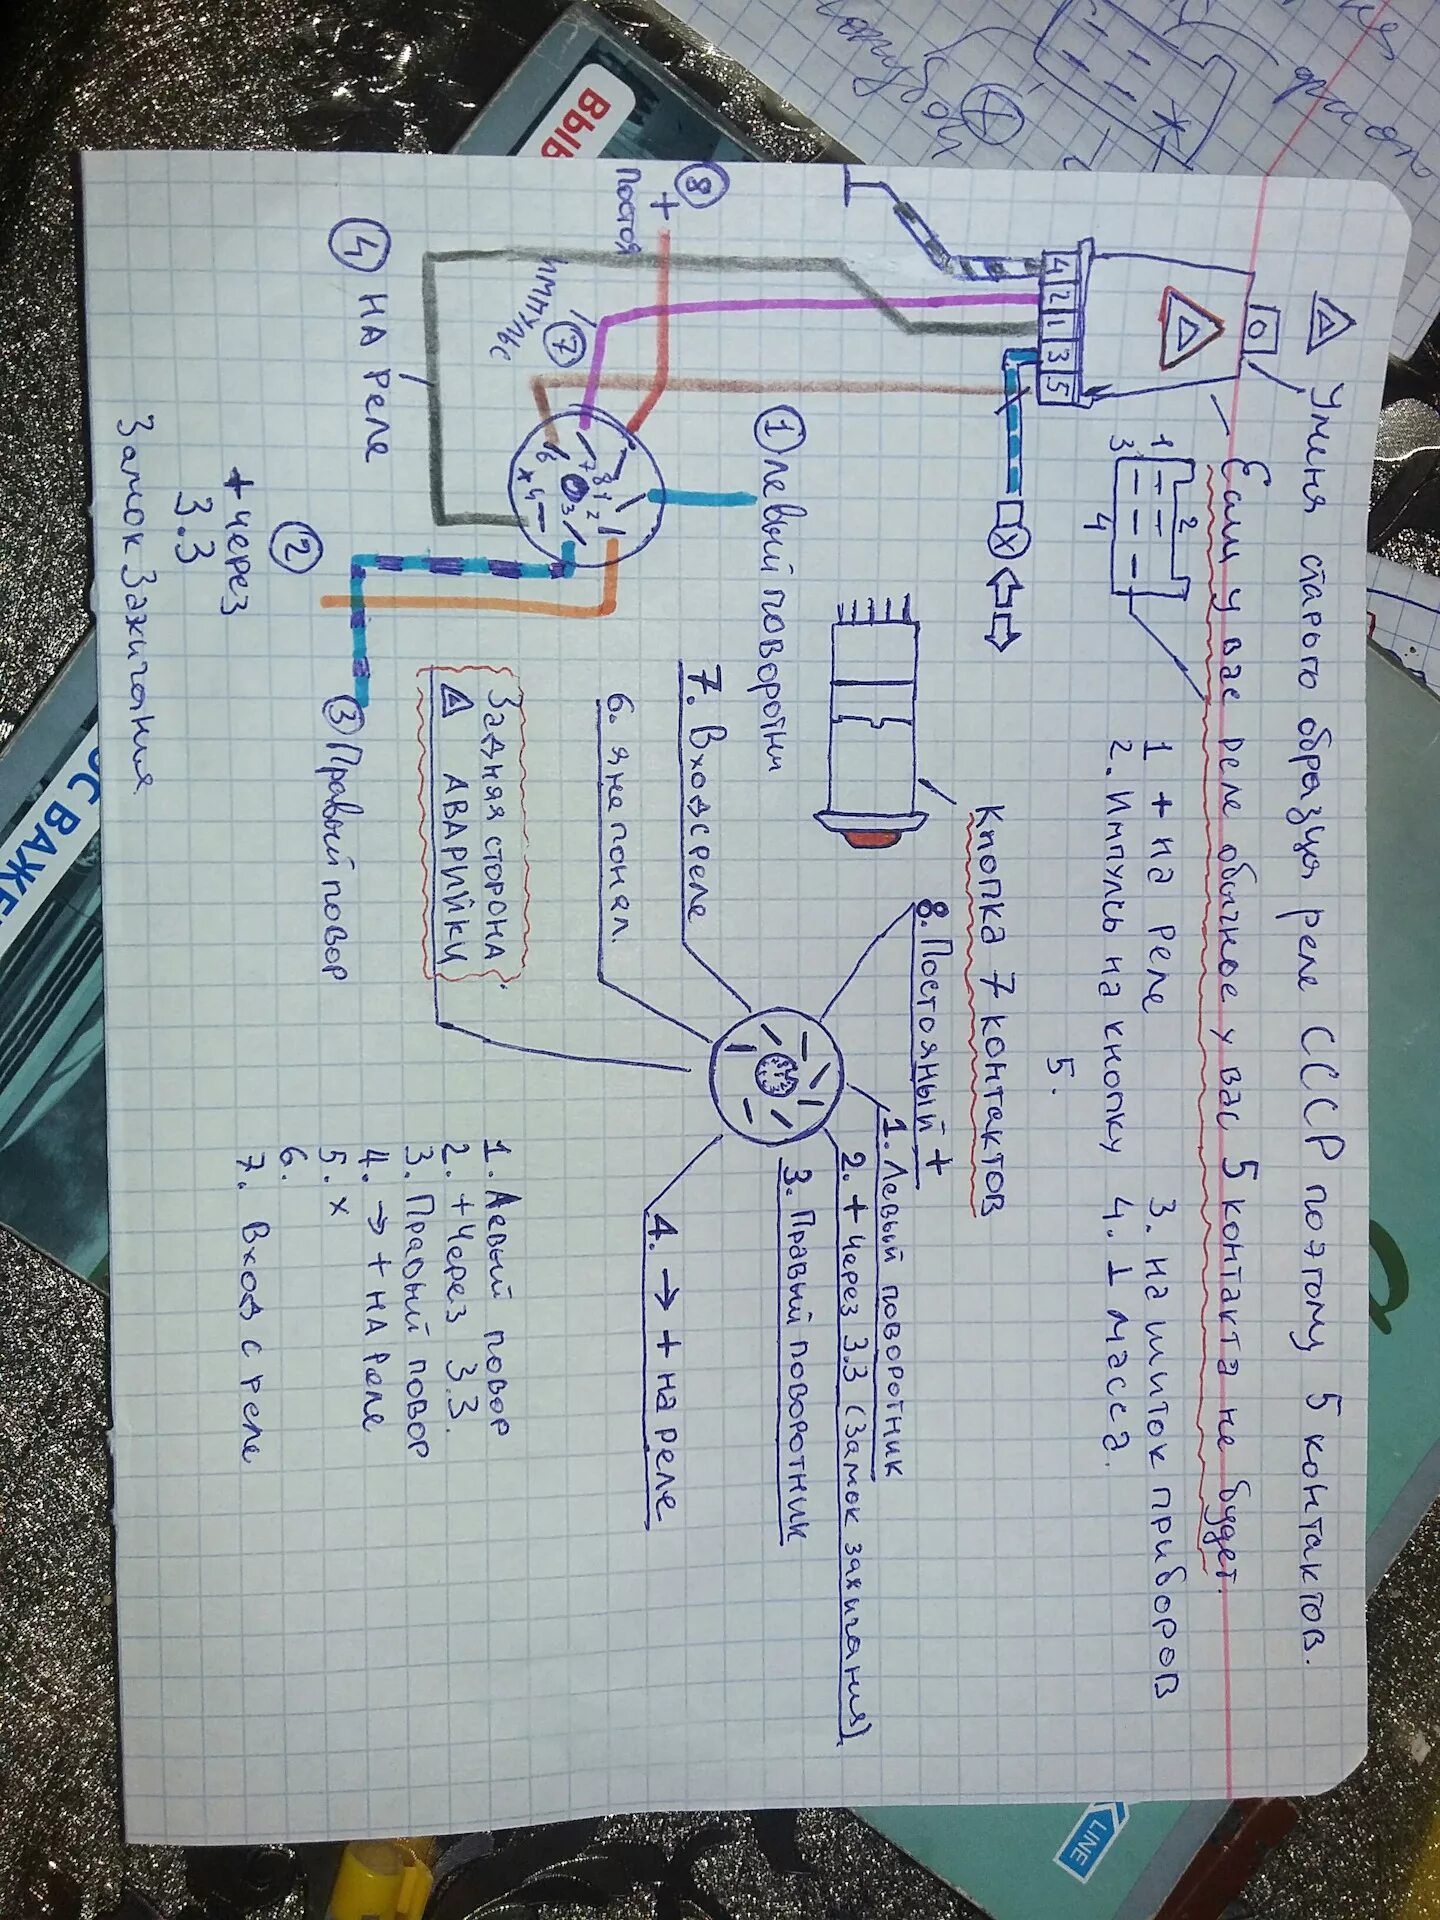 У меня старого образца реле СССР поэтому 5 контактов.
Если у вас реле обычное у вас 5 контакта не будет.
1 2 3 4
1 + на реле
2. Импульс на кнопку
3. на щиток приборов
4. ⊥ масса.
5.
4 2 1 3 5
Кнопка 7 контактов
8. Постояный +
1. Левый поворотник
2. + Через 3.3 (Замок зажигания)
3. Правый поворотник
4. → + на реле
7. Вход с реле
6. я не понял.
Задняя сторона
АВАРИЙКИ
8
+
Постоя
7
Импульс
1 Левый поворотни
4 НА реле
2
+ через
3.3
Замок Зажигания
3 Правый повор
6 7 8 1 2 3 4 х
1. Левый повор
2. + Через 3.3.
3. Правый повор
4. → + НА реле
5. х
6.
7. Вход с реле
ВЫ
ОС ВАЖЕ
LINE